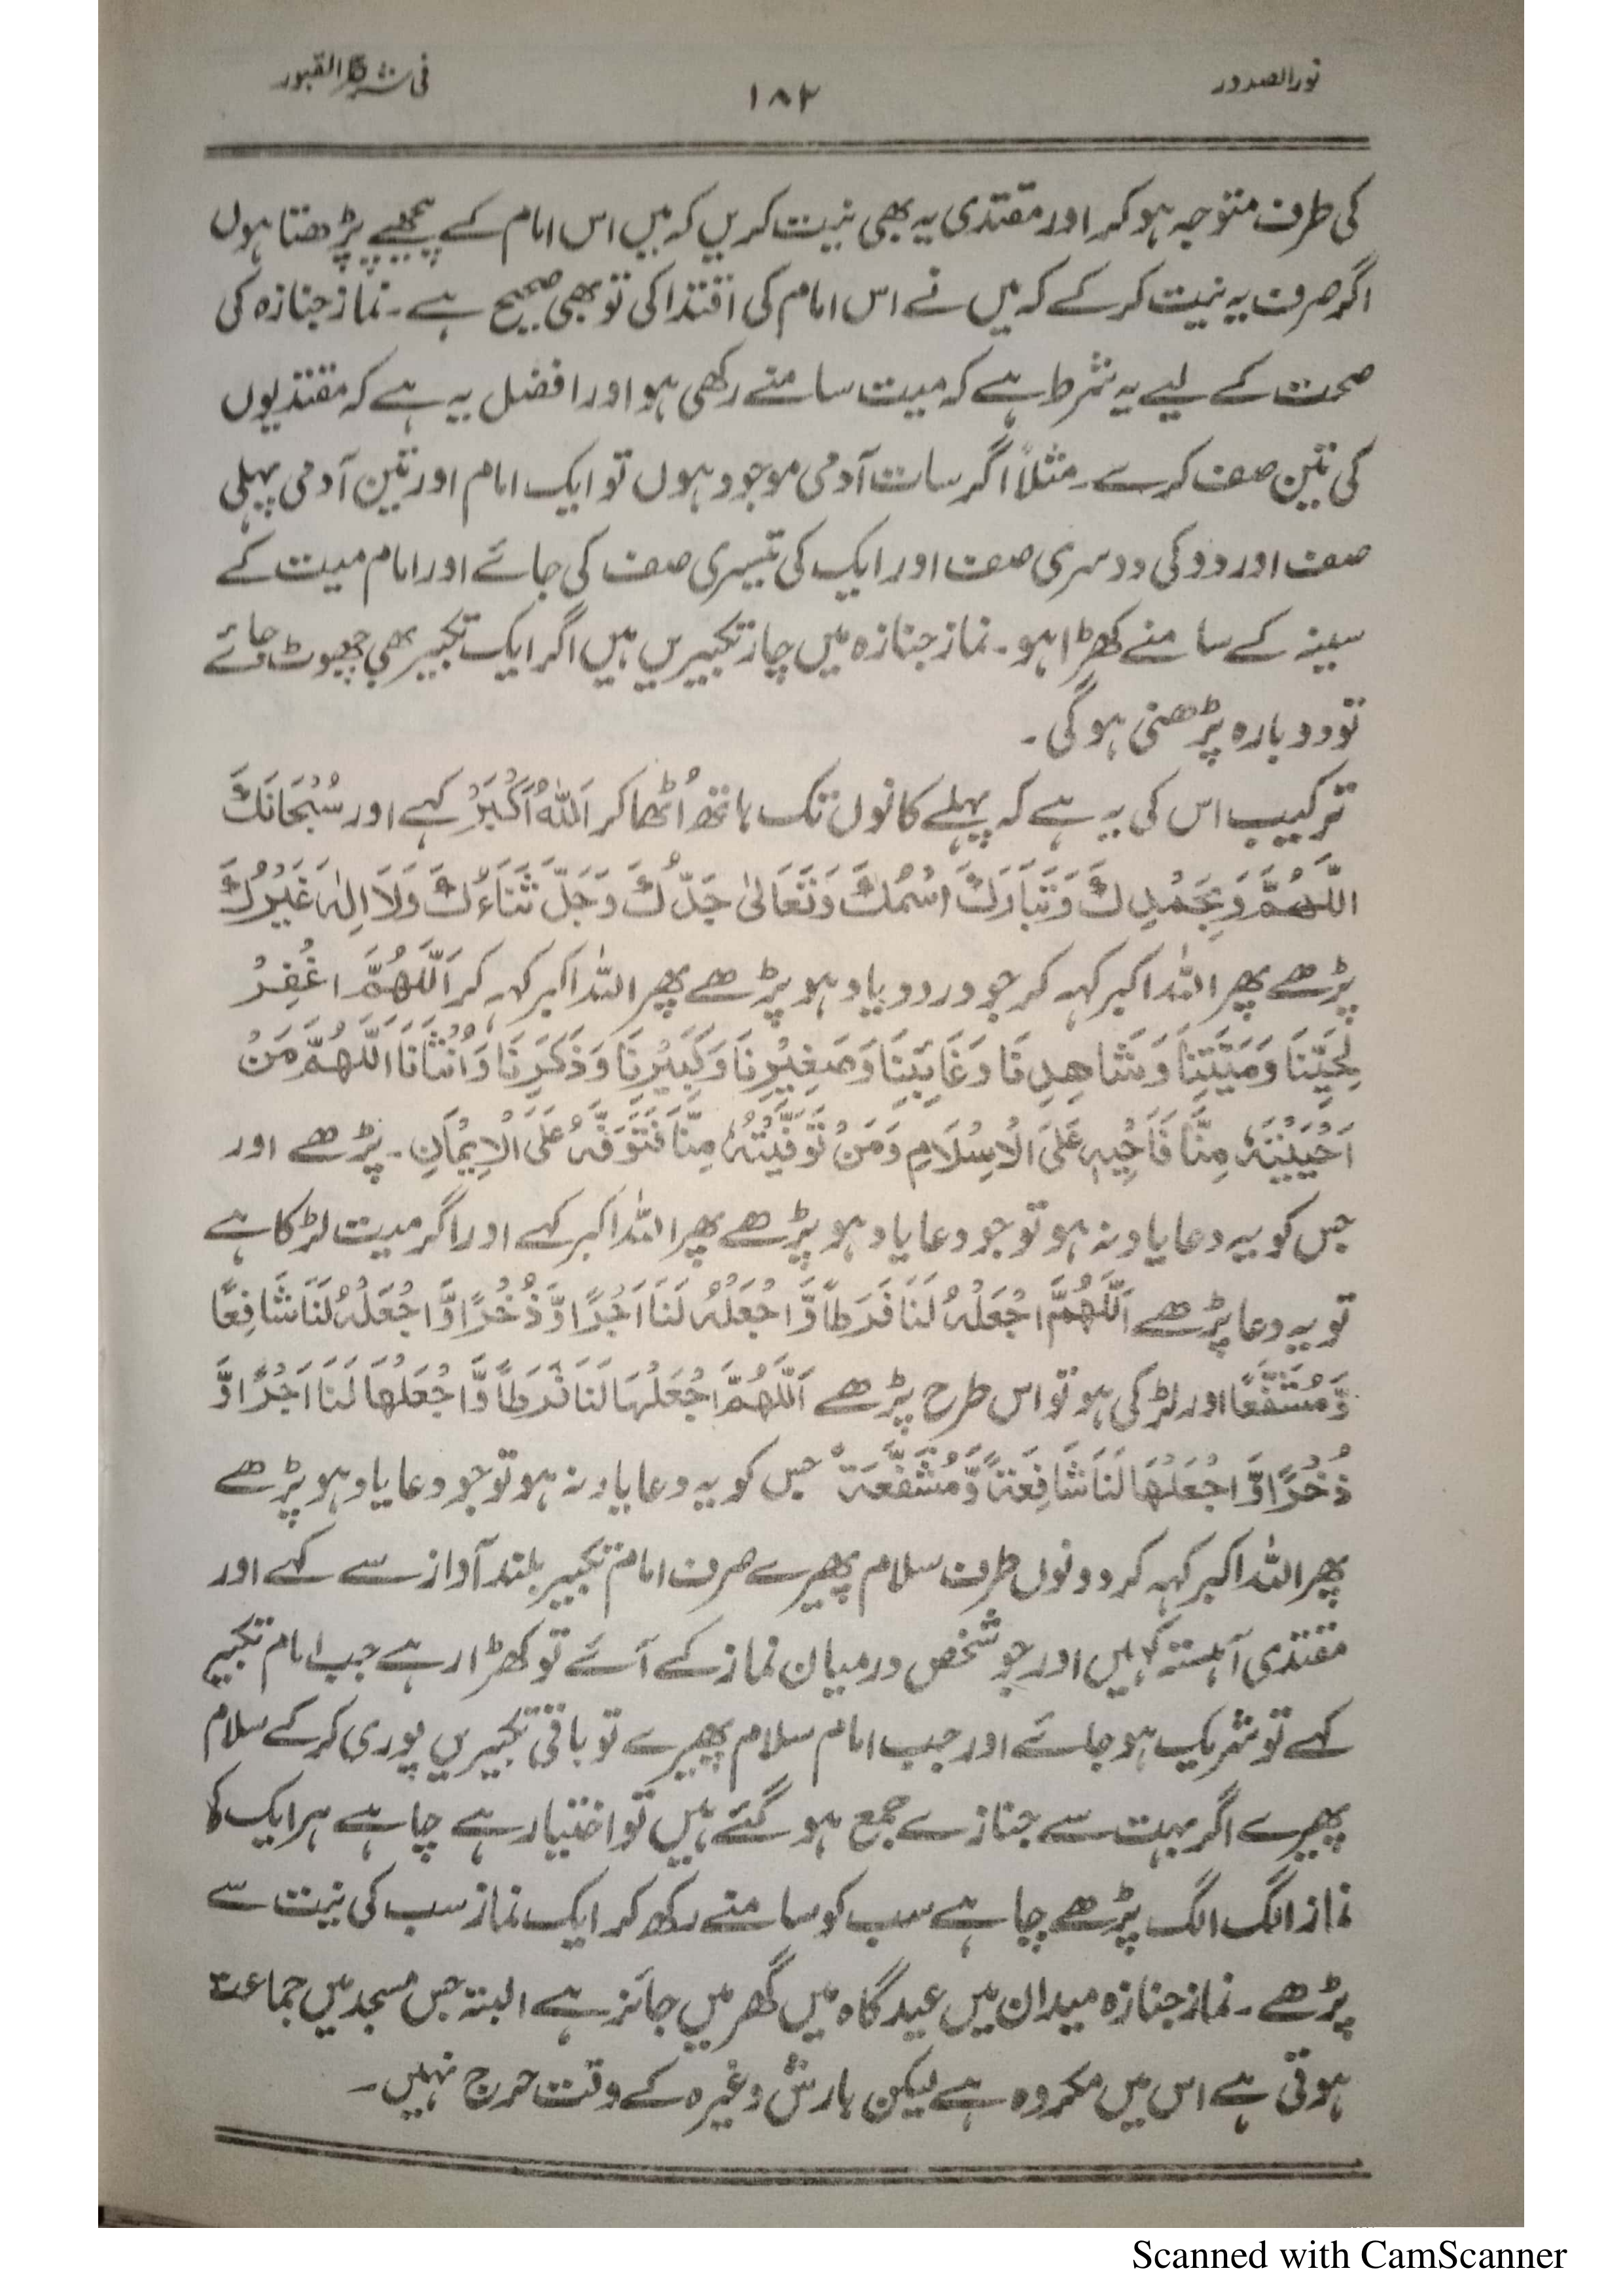 نور الصدور
۱۸۲
فی شرح القبور
کی طرف متوجہ ہو کر اور مقتدی یہ بھی نیت کریں کہ میں اس امام کے پیچھے پڑھتا ہوں
اگر صرف یہ نیت کر کے کہ میں نے اس امام کی اقتدا کی تو بھی صحیح ہے۔ نماز جنازہ کی
صحت کے لیے یہ شرط ہے کہ میت سامنے رکھی ہو اور افضل یہ ہے کہ مقتدیوں
کی تین صف کرے۔ مثلاً اگر سات آدمی موجود ہوں تو ایک امام اور تین آدمی پہلی
صف اور دو کی دوسری صف اور ایک کی تیسری صف کی جائے اور امام میت کے
سینہ کے سامنے کھڑا ہو۔ نماز جنازہ میں چار تکبیریں ہیں اگر ایک تکبیر بھی چھوٹ جائے
تو دوبارہ پڑھنی ہو گی۔
ترکیب اس کی یہ ہے کہ پہلے کانوں تک ہاتھ اُٹھا کر اَللّٰهُ اَکْبَرُ کہے اور سُبْحَانَكَ
اللّٰهُمَّ وَبِحَمْدِكَ وَتَبَارَكَ اسْمُكَ وَتَعَالیٰ جَدُّكَ وَجَلَّ ثَنَاءُكَ وَلَا اِلٰهَ غَيْرُكَ
پڑھے پھر اللہ اکبر کہہ کر جو درود یاد ہو پڑھے پھر اللہ اکبر کہہ کر اَللّٰهُمَّ اغْفِرْ
لِحَيِّنَا وَمَيِّتِنَا وَشَاهِدِنَا وَغَائِبِنَا وَصَغِيْرِنَا وَكَبِيْرِنَا وَذَكَرِنَا وَاُنْثَانَا اَللّٰهُمَّ مَنْ
اَحْيَيْتَهٗ مِنَّا فَاَحْيِهٖ عَلَى الْاِسْلَامِ وَمَنْ تَوَفَّيْتَهٗ مِنَّا فَتَوَفَّهٗ عَلَى الْاِيْمَانِ۔ پڑھے اور
جس کو یہ دعا یاد نہ ہو تو جو دعا یاد ہو پڑھے پھر اللہ اکبر کہے اور اگر میت لڑکا ہے
تو یہ دعا پڑھے اَللّٰهُمَّ اجْعَلْهُ لَنَا فَرَطًا وَّاجْعَلْهُ لَنَا اَجْرًا وَّذُخْرًا وَّاجْعَلْهُ لَنَا شَافِعًا
وَّمُشَفَّعًا اور لڑکی ہو تو اس طرح پڑھے اَللّٰهُمَّ اجْعَلْهَا لَنَا فَرَطًا وَّاجْعَلْهَا لَنَا اَجْرًا وَّ
ذُخْرًا وَّاجْعَلْهَا لَنَا شَافِعَةً وَّمُشَفَّعَةً جس کو یہ دعا یاد نہ ہو تو جو دعا یاد ہو پڑھے
پھر اللہ اکبر کہہ کر دونوں طرف سلام پھیرے صرف امام تکبیر بلند آواز سے کہے اور
مقتدی آہستہ کہیں اور جو شخص درمیان نماز کے آئے تو کھڑا رہے جب امام تکبیر
کہے تو شریک ہو جائے اور جب امام سلام پھیرے تو باقی تکبیریں پوری کر کے سلام
پھیرے اگر بہت سے جنازے جمع ہو گئے ہیں تو اختیار ہے چاہے ہر ایک کا
نماز الگ الگ پڑھے چاہے سب کو سامنے رکھ کر ایک نماز سب کی نیت سے
پڑھے۔ نماز جنازہ میدان میں عید گاہ میں گھر میں جائز ہے البتہ جس مسجد میں جماعت
ہوتی ہے اس میں مکروہ ہے لیکن بارش وغیرہ کے وقت حرج نہیں۔
Scanned with CamScanner